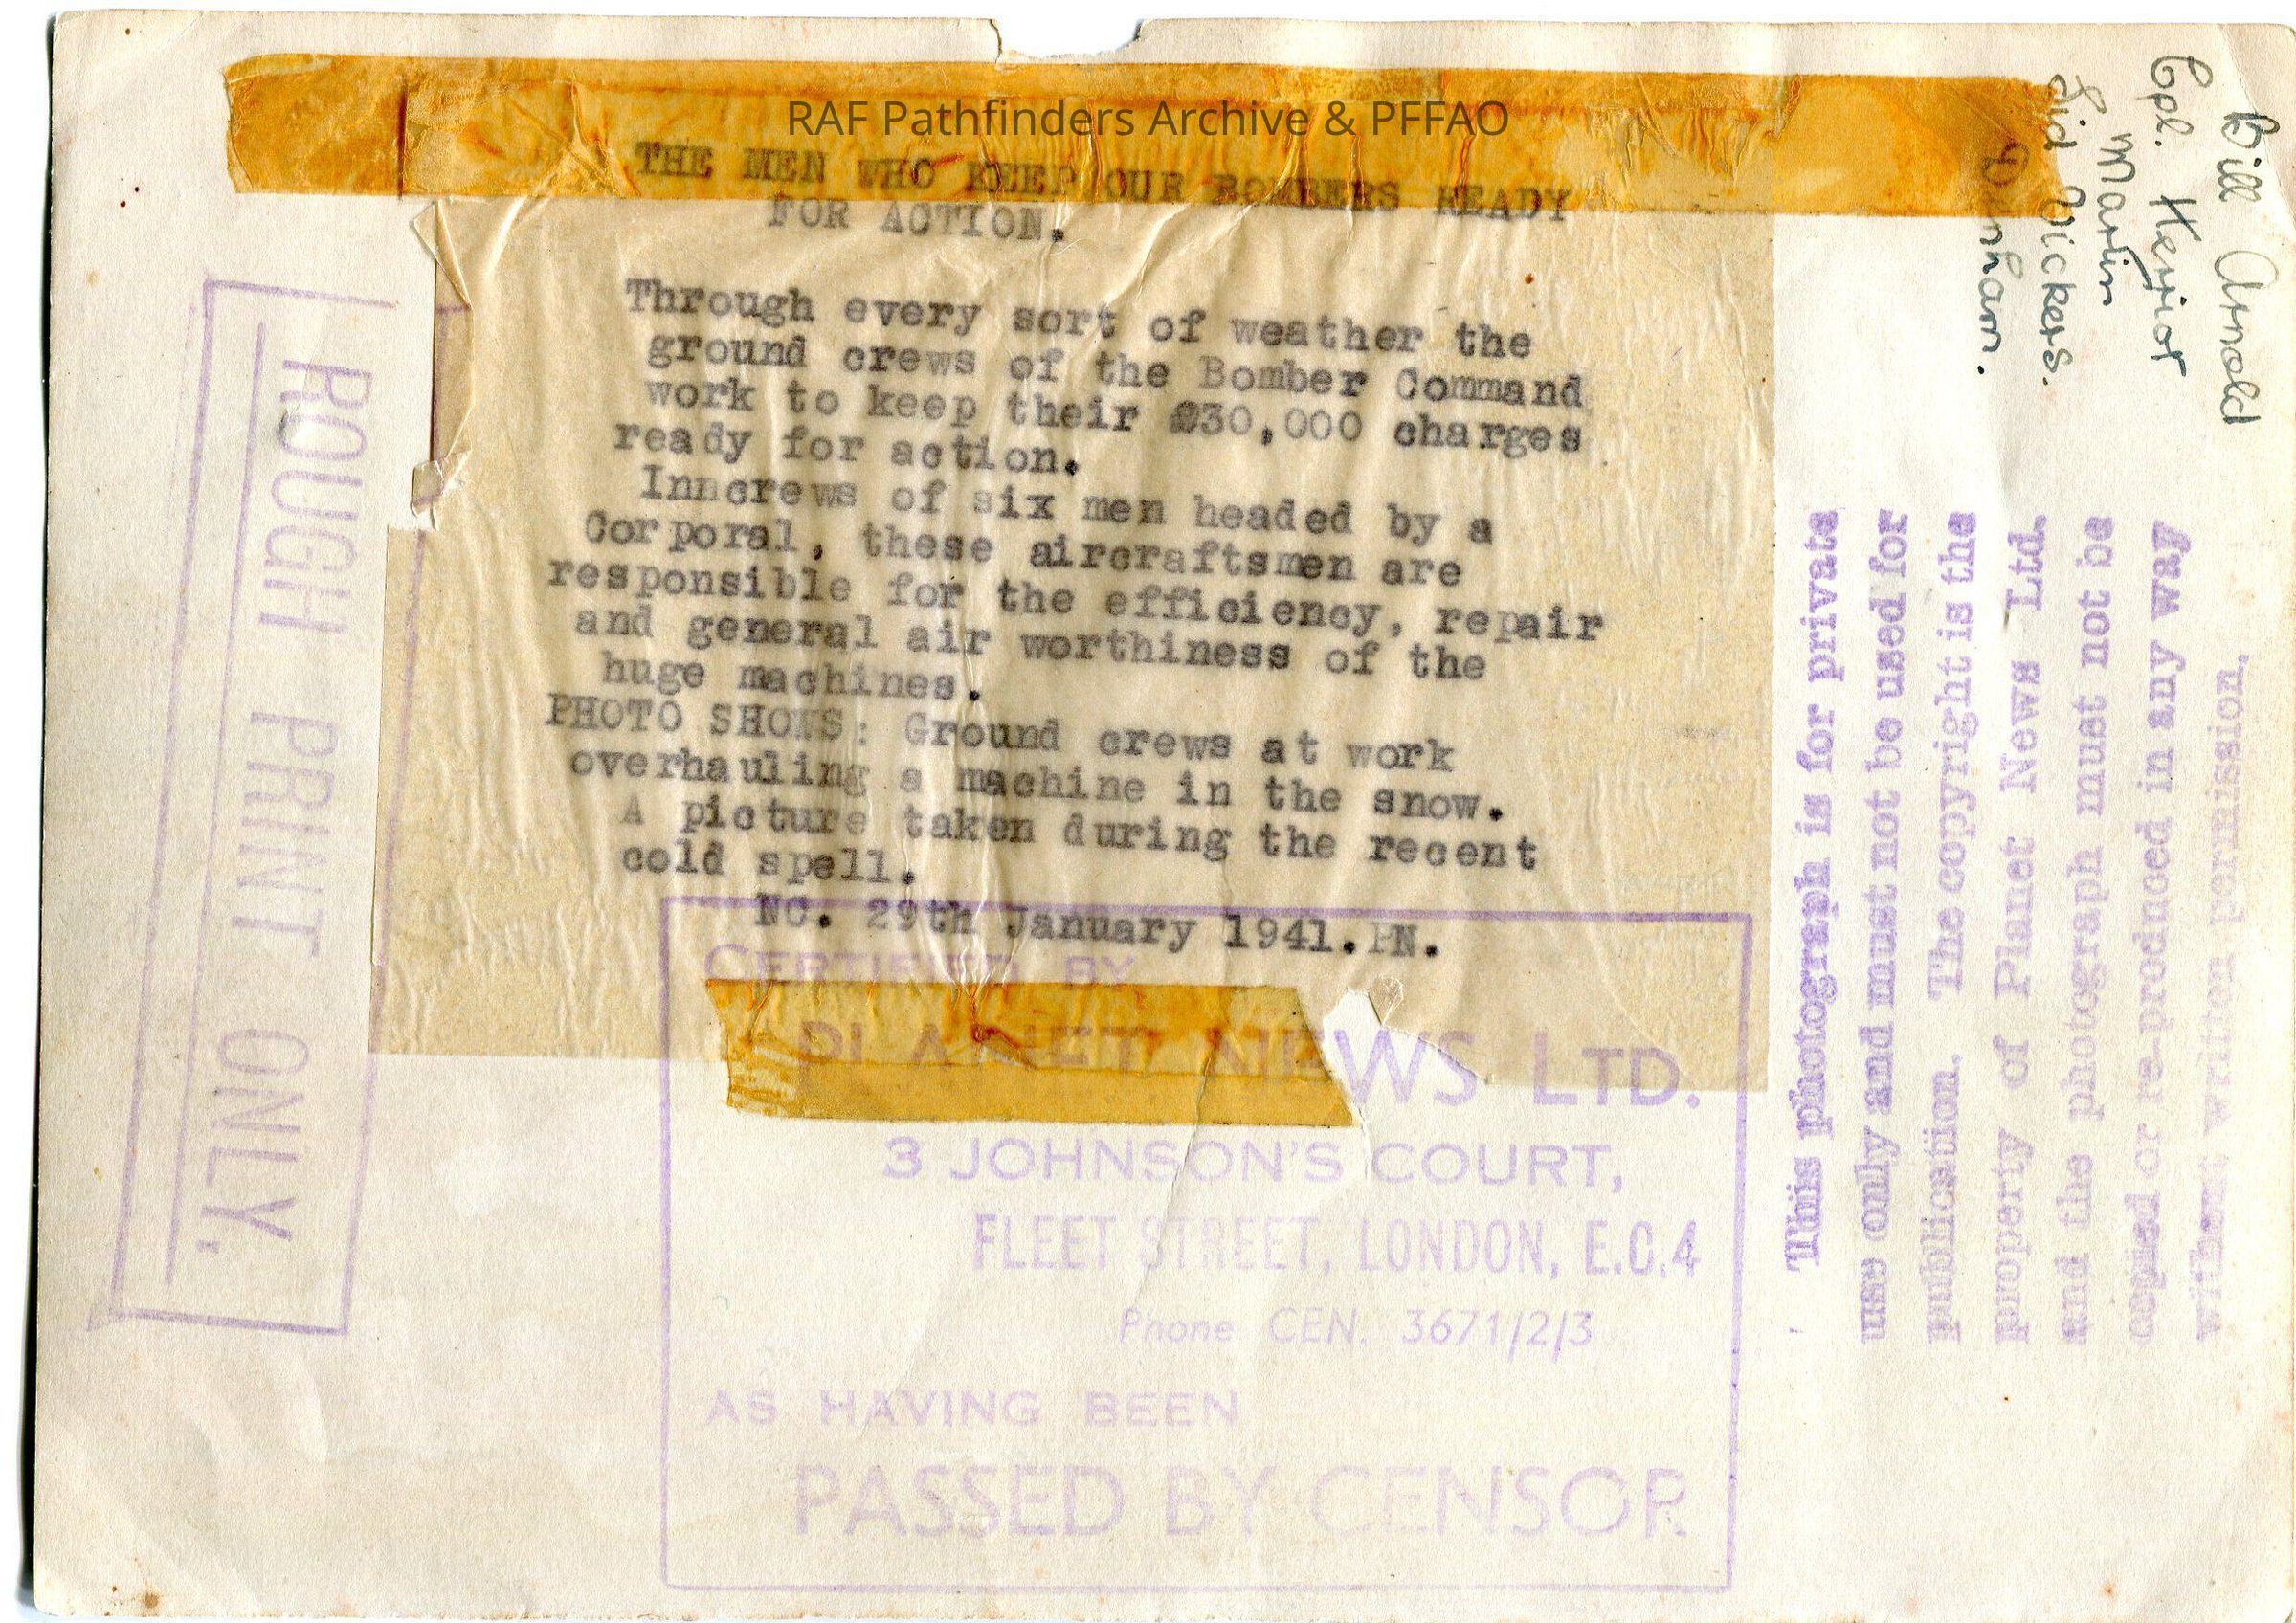 RAF Pathfinders Archive & PFFAO
THE MEN WHO KEEP OUR BOMBERS READY
FOR ACTION.
Through every sort of weather the
ground crews of the Bomber Command
work to keep their £30,000 charges
ready for action.
Inncrews of six men headed by a
Corporal, these aircraftsmen are
responsible for the efficiency, repair
and general air worthiness of the
huge machines.
PHOTO SHOWS: Ground crews at work
overhauling a machine in the snow.
A picture taken during the recent
cold spell.
NC. 29th January 1941. PN.
CERTIFIED BY
PLANET NEWS LTD.
3 JOHNSON'S COURT,
FLEET STREET, LONDON, E.C.4
Phone CEN. 3671/2/3
AS HAVING BEEN
PASSED BY CENSOR
ROUGH PRINT ONLY.
This photograph is for private
use only and must not be used for
publication. The copyright is the
property of Planet News Ltd.
and the photograph must not be
copied or re-produced in any way
without written permission.
Bill Arnold
Cpl. Herriot
Martin
Sid Vickers.